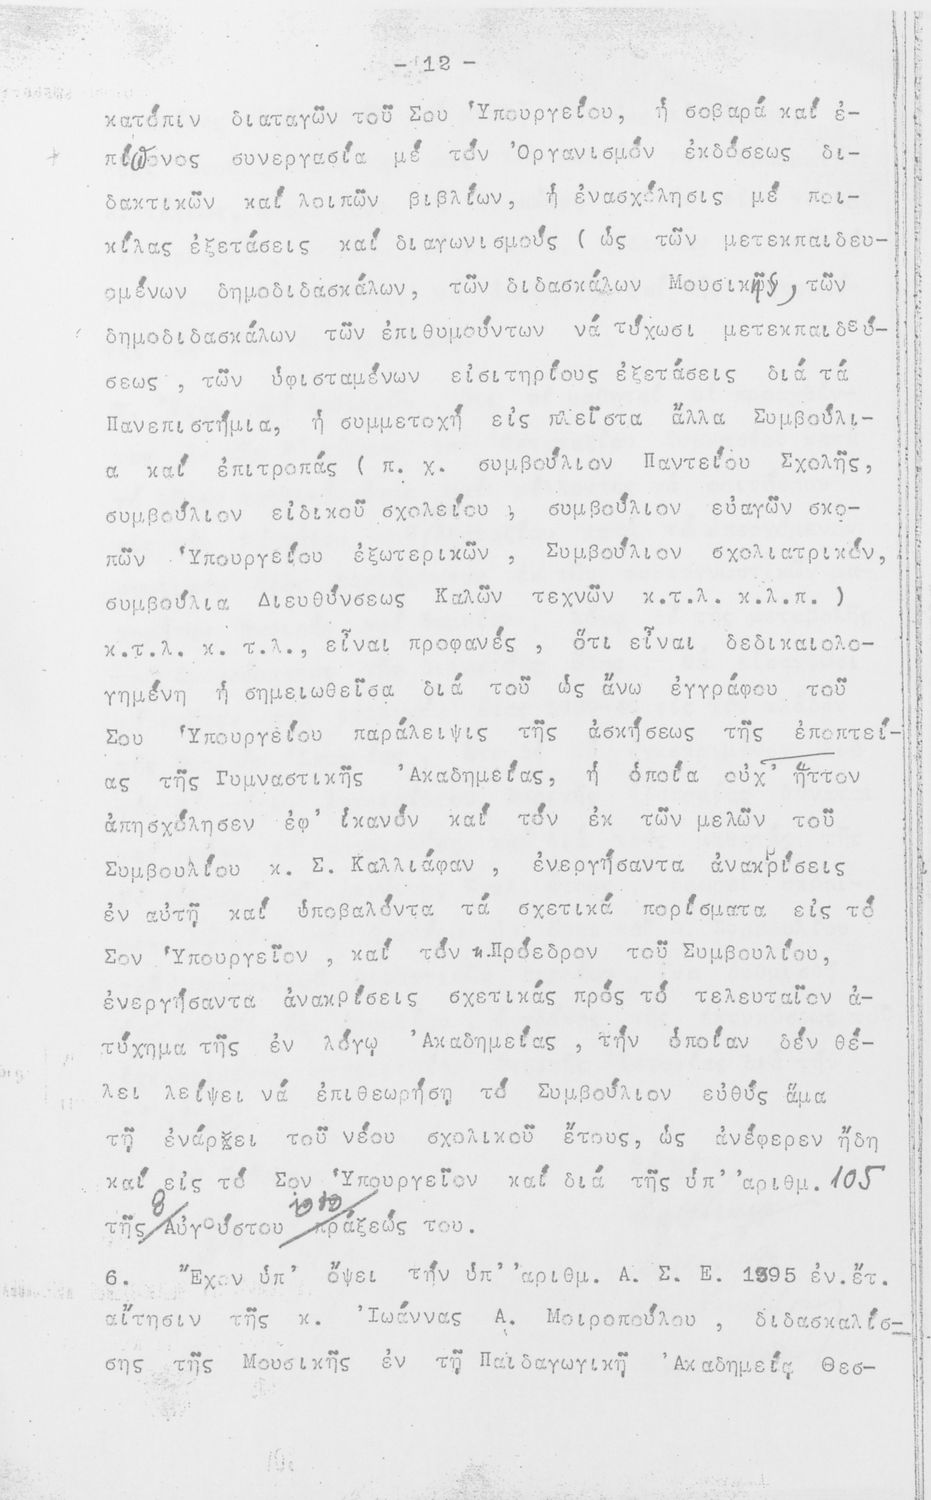 - 12 -
κατόπιν διαταγῶν τοῦ Σου Ὑπουργείου, ἡ σοβαρά καί ἐ-
πίπονος συνεργασία μέ τόν Ὀργανισμόν ἐκδόσεως δι-
δακτικῶν καί λοιπῶν βιβλίων, ἡ ἐνασχόλησις μέ ποι-
κίλας ἐξετάσεις καί διαγωνισμούς ( ὡς τῶν μετεκπαιδευ-
ομένων δημοδιδασκάλων, τῶν διδασκάλων Μουσικῆς, τῶν
δημοδιδασκάλων τῶν ἐπιθυμούντων νά τύχωσι μετεκπαιδεύ-
σεως , τῶν ὑφισταμένων εἰσιτηρίους ἐξετάσεις διά τά
Πανεπιστήμια, ἡ συμμετοχή εἰς πλεῖστα ἄλλα Συμβούλι-
α καί ἐπιτροπάς ( π. χ. συμβούλιον Παντείου Σχολῆς,
συμβούλιον εἰδικοῦ σχολείου , συμβούλιον εὐαγῶν σκο-
πῶν Ὑπουργείου ἐξωτερικῶν , Συμβούλιον σχολιατρικόν,
συμβούλια Διευθύνσεως Καλῶν τεχνῶν κ.τ.λ. κ.λ.π. )
κ.τ.λ. κ. τ.λ., εἶναι προφανές , ὅτι εἶναι δεδικαιολο-
γημένη ἡ σημειωθεῖσα διά τοῦ ὡς ἄνω ἐγγράφου τοῦ
Σου Ὑπουργείου παράλειψις τῆς ἀσκήσεως τῆς ἐποπτεί-
ας τῆς Γυμναστικῆς Ἀκαδημείας, ἡ ὁποία οὐχ' ἧττον
ἀπησχόλησεν ἐφ' ἱκανόν καί τόν ἐκ τῶν μελῶν τοῦ
Συμβουλίου κ. Σ. Καλλιάφαν , ἐνεργήσαντα ἀνακρίσεις
ἐν αὐτῇ καί ὑποβαλόντα τά σχετικά πορίσματα εἰς τό
Σον Ὑπουργεῖον , καί τόν κ.Πρόεδρον τοῦ Συμβουλίου,
ἐνεργήσαντα ἀνακρίσεις σχετικάς πρός τό τελευταῖον ἀ-
τύχημα τῆς ἐν λόγῳ Ἀκαδημείας , τήν ὁποίαν δέν θέ-
λει λείψει νά ἐπιθεωρήσῃ τό Συμβούλιον εὐθύς ἅμα
τῇ ἐνάρξει τοῦ νέου σχολικοῦ ἔτους, ὡς ἀνέφερεν ἤδη
καί εἰς τό Σον Ὑπουργεῖον καί διά τῆς ὑπ' ἀριθμ. 105
τῆς 8 Αὐγούστου πράξεώς του.
6. Ἔχον ὑπ' ὄψει τήν ὑπ' ἀριθμ. Α. Σ. Ε. 1395 ἐν.ἔτ.
αἴτησιν τῆς κ. Ἰωάννας Α. Μοιροπούλου , διδασκαλίσ-
σης τῆς Μουσικῆς ἐν τῇ Παιδαγωγικῇ Ἀκαδημείᾳ Θεσ-